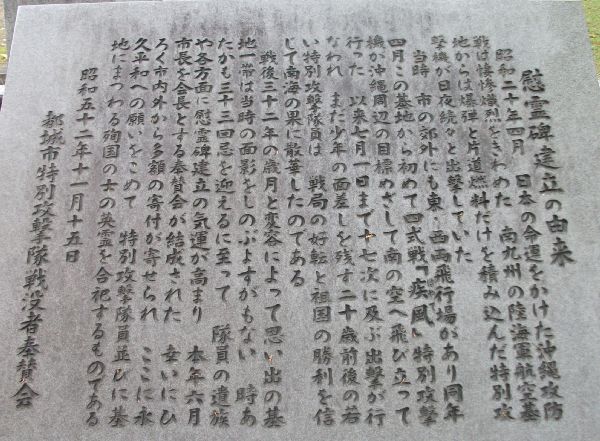 慰霊碑建立の由来
昭和二十年四月 日本の命運をかけた沖縄攻防
戦は悽惨熾烈をきわめた 南九州の陸海軍航空基
地からは爆弾と片道燃料だけを積み込んだ特別攻
撃機が日夜続々と出撃していた
当時 市の郊外にも東・西両飛行場があり同年
四月この基地から初めて四式戦「疾風」特別攻撃
機が沖縄周辺の目標めざして南の空へ飛び立って
行った 以来七月一日まで十七次に及ぶ出撃が行
なわれ まだ少年の面差しを残す二十歳前後の若
い特別攻撃隊員は 戦局の好転と祖国の勝利を信
じて南海の果に散華したのである
戦後三十二年の歳月と変容によって思い出の基
地一帯は当時の面影をしのぶよすがもない 時あ
たかも三十三回忌を迎えるに至って 隊員の遺族
や各方面に慰霊碑建立の気運が高まり 本年六月
市長を会長とする奉賛会が結成された 幸いにひ
ろく市内外から多額の寄付が寄せられ ここに永
久平和への願いをこめて 特別攻撃隊員並びに基
地にまつわる殉国の士の英霊を合祀するものである
昭和五十二年十一月十五日
都城市特別攻撃隊戦没者奉賛会